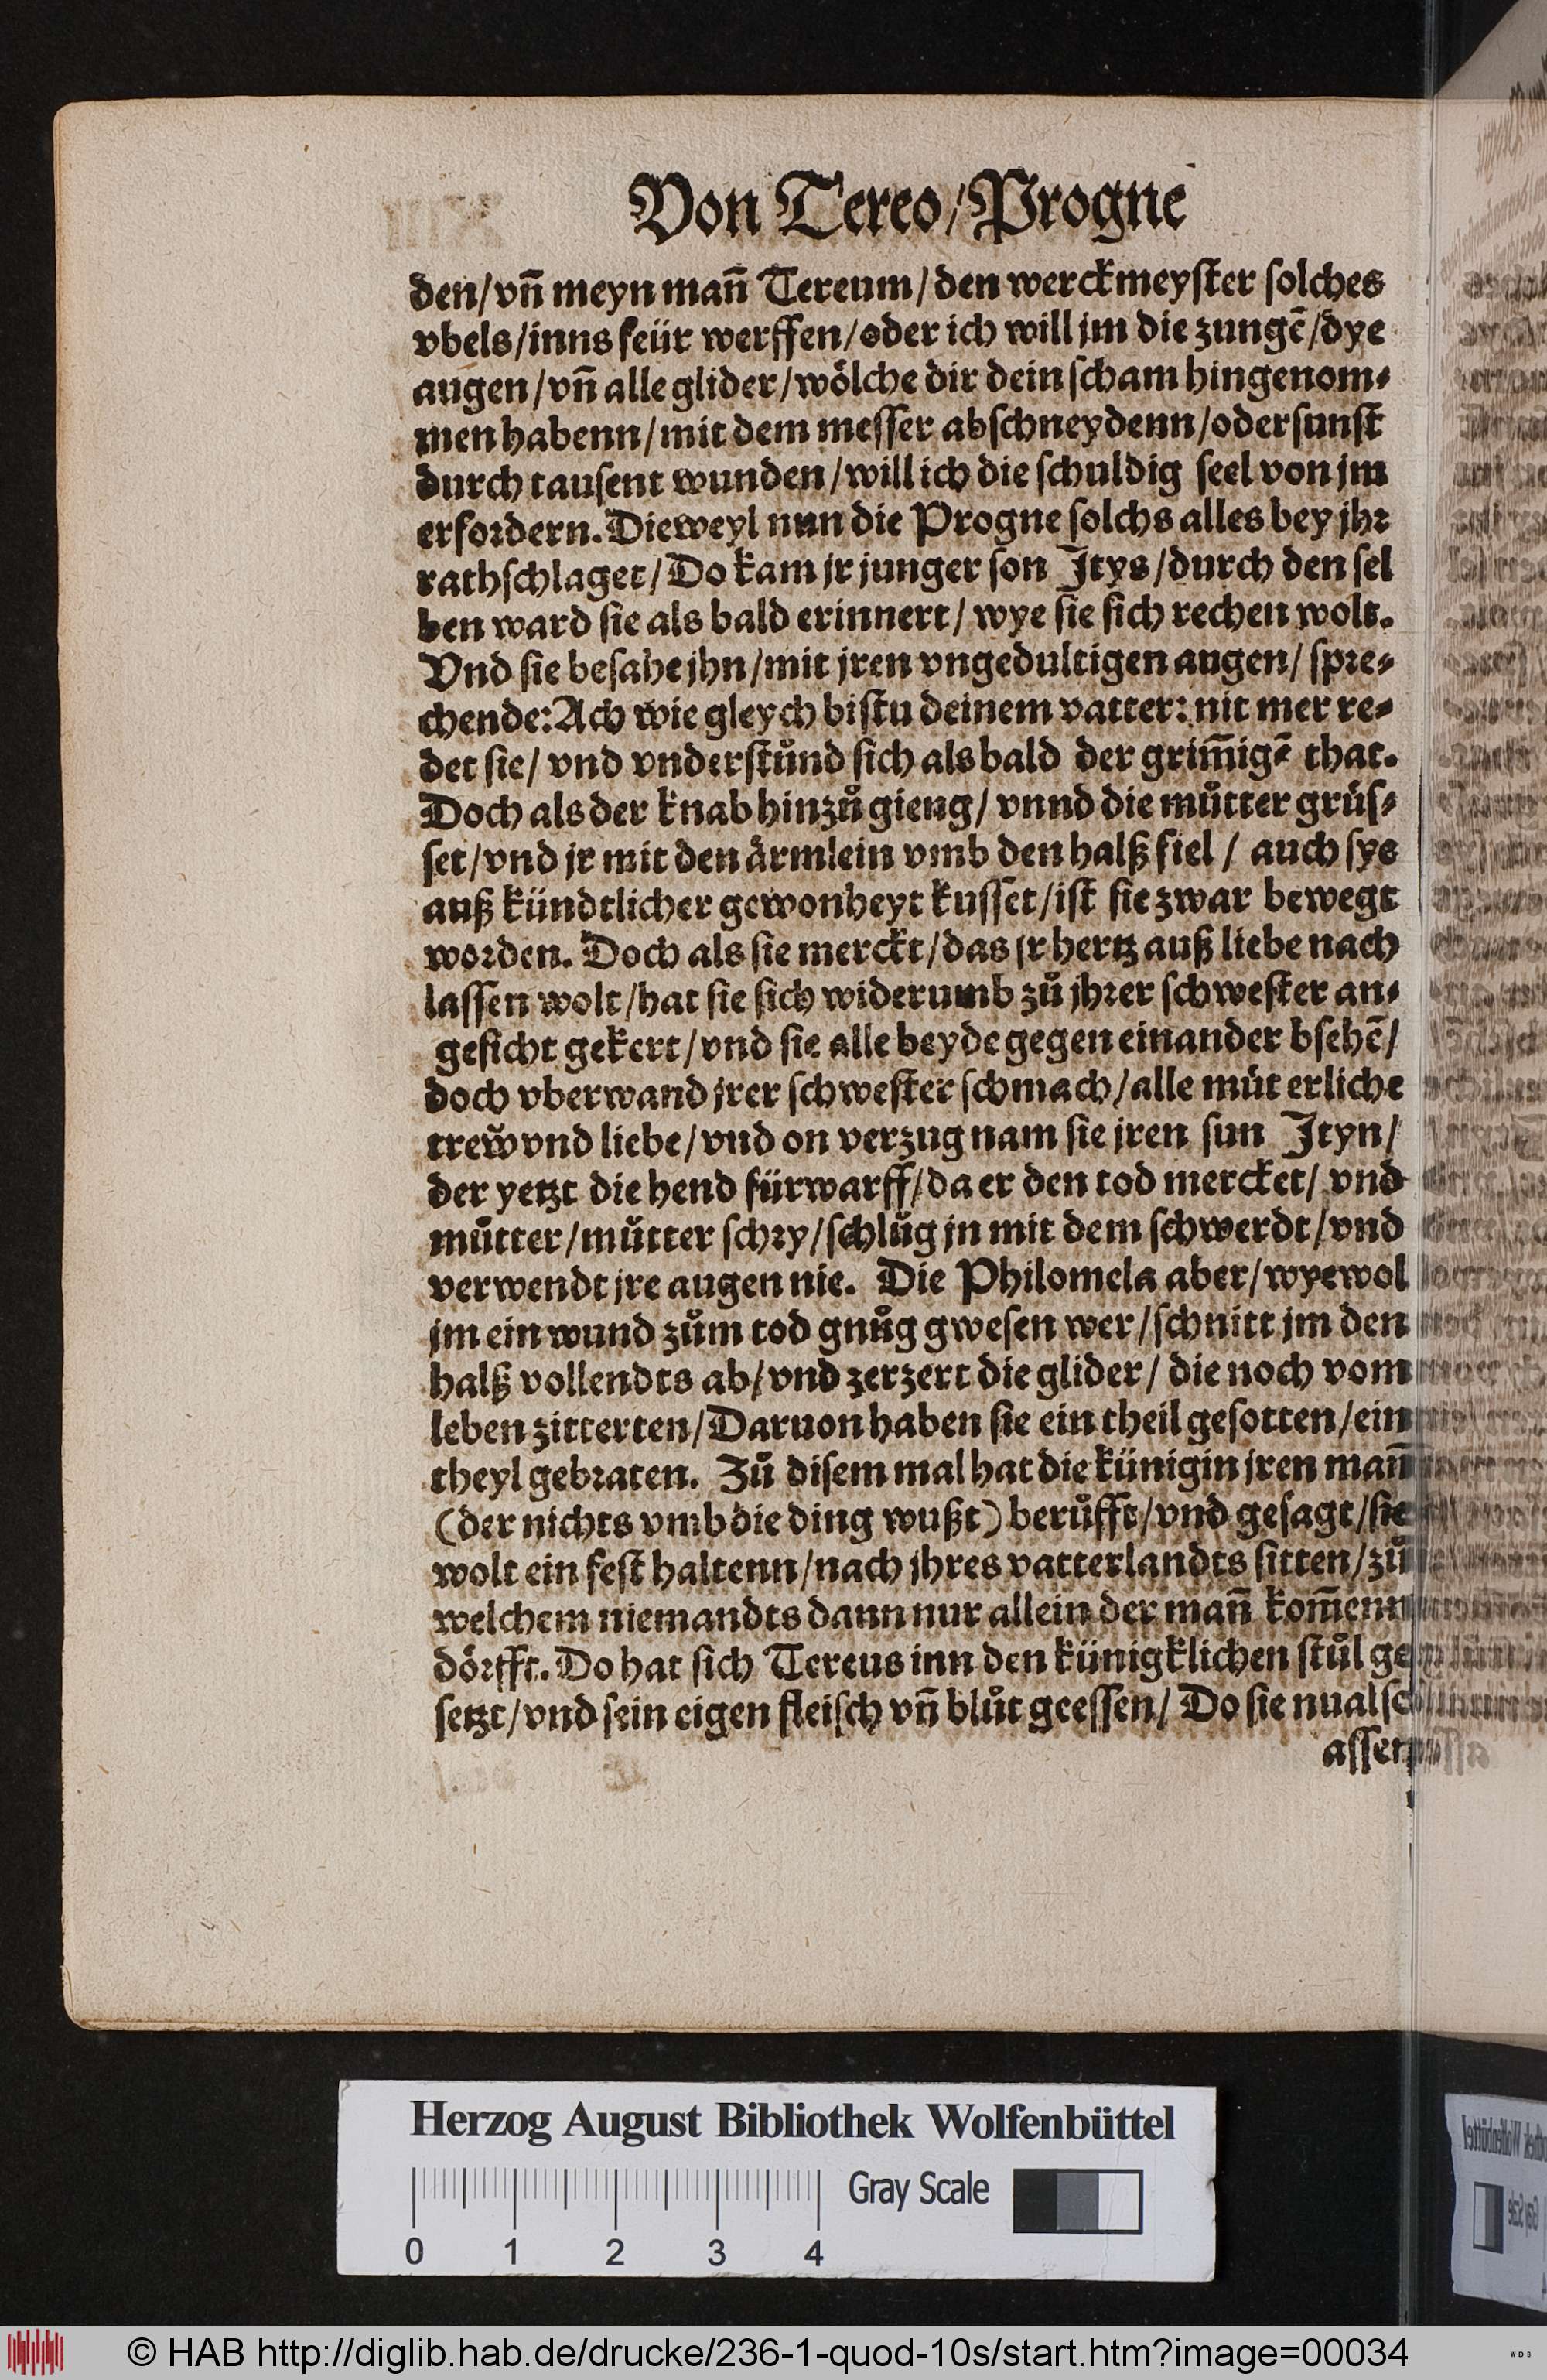 Von Tereo/Progne
den/vn̄ meyn man̄ Tereum/den werckmeyſter ſolches
vbels/inns feür werffen/oder ich will jm die zungē/dye
augen/vn̄ alle glider/wölche dir dein ſcham hingenom⸗
men habenn/mit dem meſſer abſchneydenn/oder ſunſt
durch tauſent wunden/will ich die ſchuldig ſeel von jm
erfordern. Dieweyl nun die Progne ſolchs alles bey jhr
rathſchlaget/Do kam jr junger ſon Itys/durch den ſel
ben ward ſie als bald erinnert/wye ſie ſich rechen wolt.
Vnd ſie beſahe jhn/mit jren vngedultigen augen/ſpre⸗
chende: Ach wie gleych biſtu deinem vatter: nit mer re⸗
det ſie/vnd vnderſtůnd ſich als bald der grim̄igē that.
Doch als der knab hinzů gieng/vnnd die můtter grüſ⸗
ſet/vnd jr mit den ärmlein vmb den halß fiel/auch ſye
auß kündtlicher gewonheyt kuſſet/iſt ſie zwar bewegt
worden. Doch als ſie merckt/das jr hertz auß liebe nach
laſſen wolt/hat ſie ſich widerumb zů jhrer ſchweſter an⸗
geſicht gekert/vnd ſie alle beyde gegen einander bſehē/
doch vberwand jrer ſchweſter ſchmach/alle müt erliche
treẘ vnd liebe/vnd on verzug nam ſie jren ſun Ityn/
der yetzt die hend fürwarff/da er den tod mercket/vnd
můtter/můtter ſchry/ſchlůg jn mit dem ſchwerdt/vnd
verwendt jre augen nie. Die Philomela aber/wyewol
jm ein wund zům tod gnůg gweſen wer/ſchnitt jm den
halß vollendts ab/vnd zerzert die glider/die noch vom
leben zitterten/Daruon haben ſie ein theil geſotten/ein
theyl gebraten. Zů diſem mal hat die künigin jren man̄
(der nichts vmb die ding wußt) berůfft/vnd geſagt/ſie
wolt ein feſt haltenn/nach jhres vatterlandts ſitten/zů
welchem niemandts dann nur allein der man̄ kom̄enn
dörfft. Do hat ſich Tereus inn den künigklichen ſtůl ge
ſetzt/vnd ſein eigen fleiſch vn̄ blůt geeſſen/Do ſie nu alſo
aſſen
Herzog August Bibliothek Wolfenbüttel
Gray Scale
0 1 2 3 4
© HAB http://diglib.hab.de/drucke/236-1-quod-10s/start.htm?image=00034